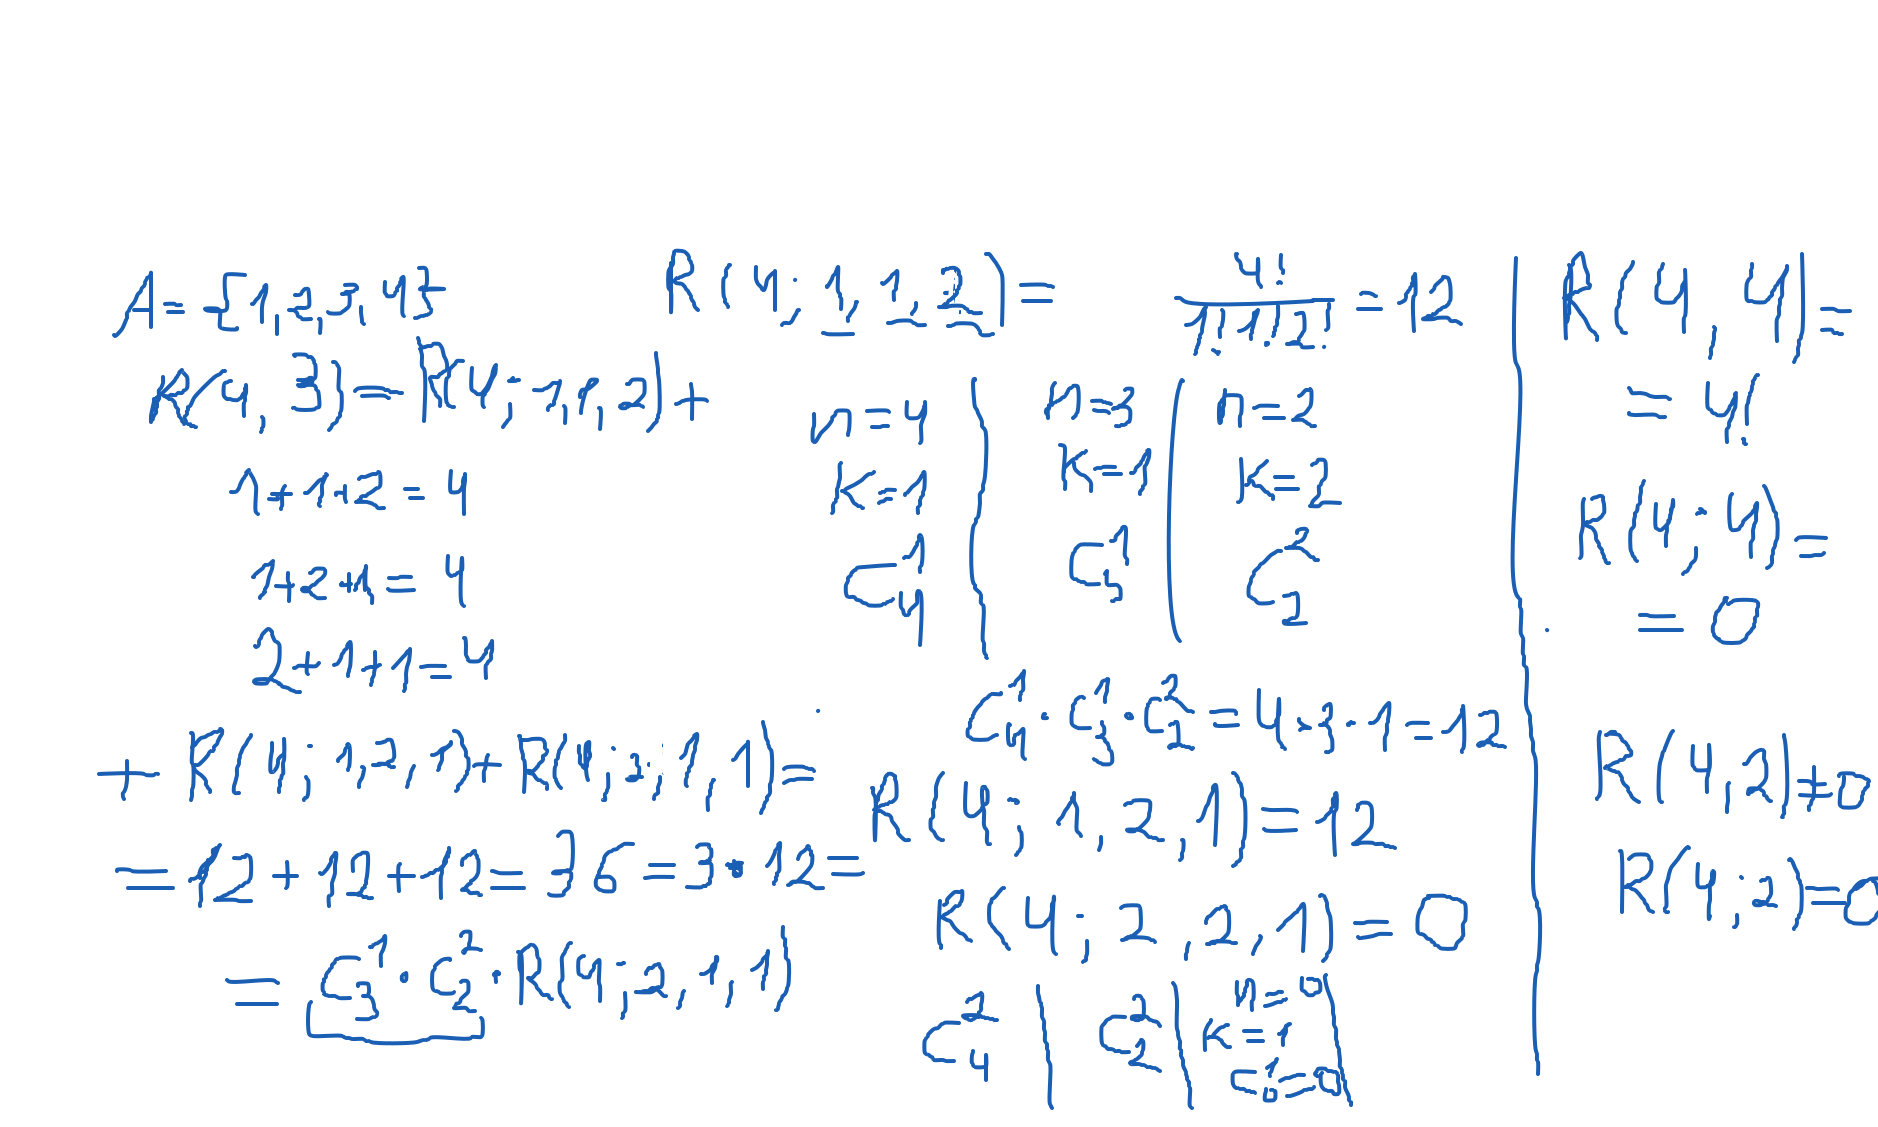 A = {1, 2, 3, 4}
R(4, 3) = R(4; 1, 1, 2) +
1 + 1 + 2 = 4
1 + 2 + 1 = 4
2 + 1 + 1 = 4
+ R(4; 1, 2, 1) + R(4; 2; 1, 1) =
= 12 + 12 + 12 = 36 = 3 · 12 =
= C₃¹ · C₂² · R(4; 2, 1, 1)
R(4; 1, 1, 2) = 4! / 1! 1! 2! = 12
n = 4 | n = 3 | n = 2
K = 1 | K = 1 | K = 2
C₄¹ | C₃¹ | C₂²
C₄¹ · C₃¹ · C₂² = 4 · 3 · 1 = 12
R(4; 1, 2, 1) = 12
R(4; 2, 2, 1) = 0
C₄² | C₂² | n = 0
K = 1
C₀¹ = 0
R(4, 4) =
= 4!
R(4; 4) =
= 0
R(4, 2) ≠ 0
R(4; 2) = 0